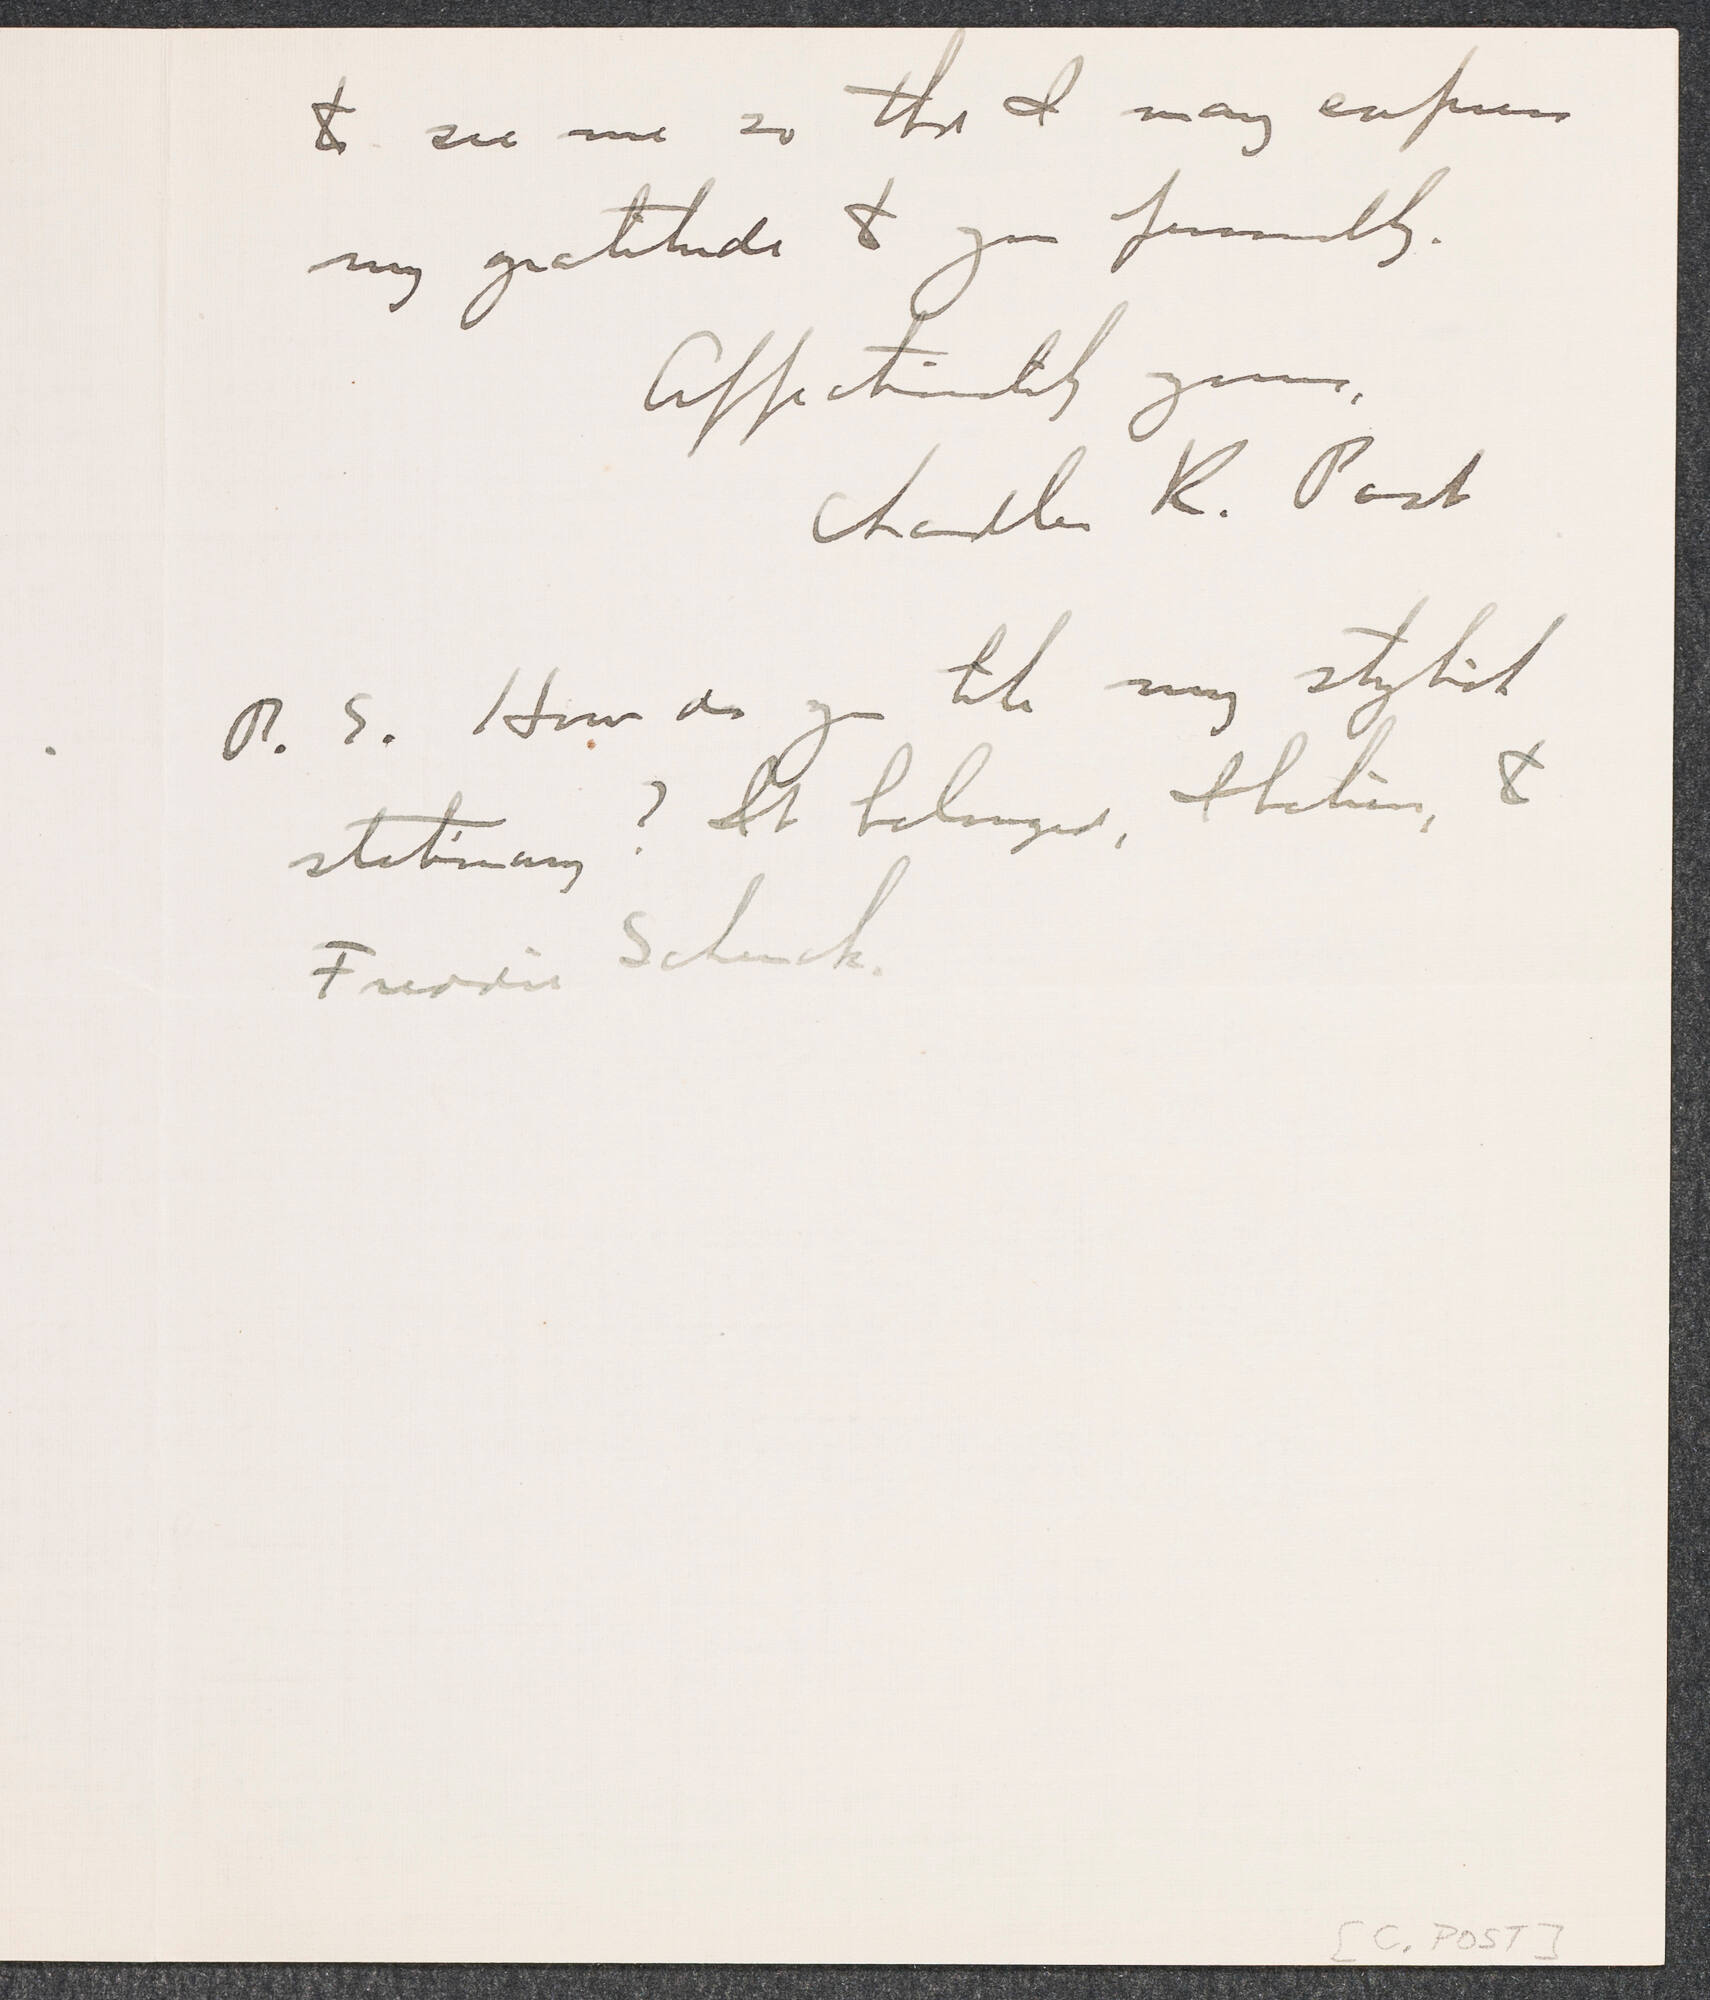 to see me so that I may express
my gratitude to you personally.
Affectionately yours,
Chandler R. Post
P. S. How do you like my stylish
stationary? It belongs, Italian, to
Freddie Schenck.
[C. POST]